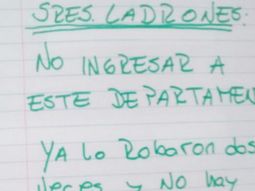 SRES. LADRONES:
NO INGRESAR A
ESTE DEPARTAMEN
YA LO ROBARON dos
Veces y NO hay